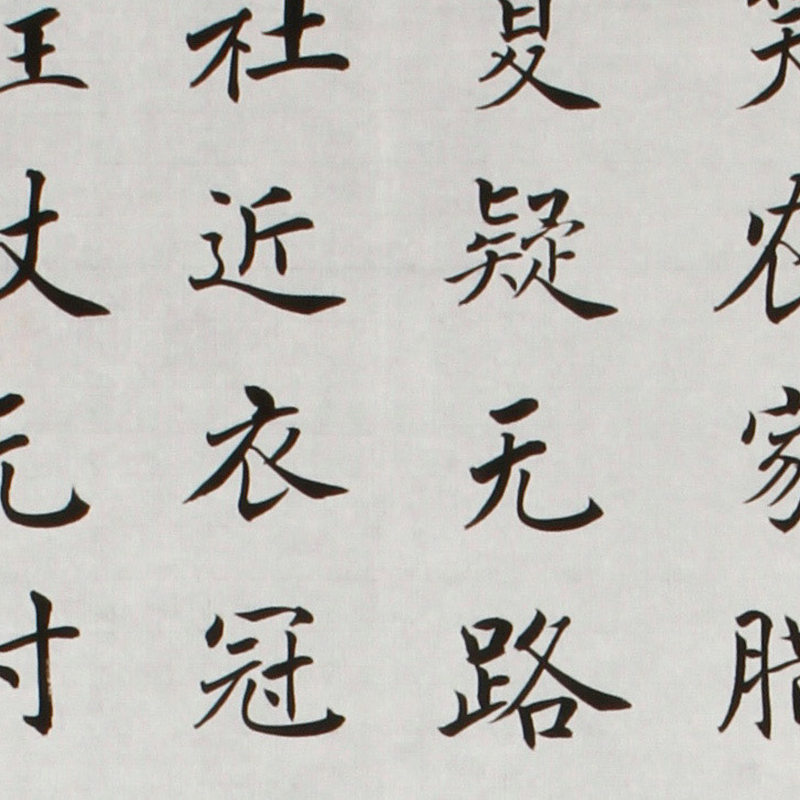 笑农家腊
复疑无路
社近衣冠
拄杖无时